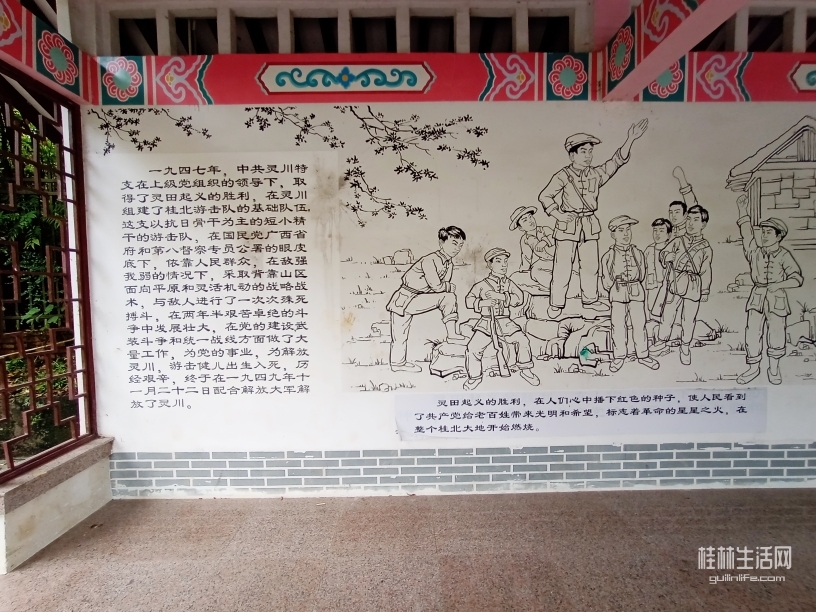 一九四七年，中共灵川特
支在上级党组织的领导下，取
得了灵田起义的胜利，在灵川
组建了桂北游击队的基础队伍
这支以抗日骨干为主的短小精
干的游击队，在国民党广西省
府和第八督察专员公署的眼皮
底下，依靠人民群众，在敌强
我弱的情况下，采取背靠山区
面向平原和灵活机动的战略战
术，与敌人进行了一次次殊死
搏斗，在两年半艰苦卓绝的斗
争中发展壮大，在党的建设武
装斗争和统一战线方面做了大
量工作，为党的事业，为解放
灵川，游击健儿出生入死，历
经艰辛，终于在一九四九年十
一月二十二日配合解放大军解
放了灵川。
灵田起义的胜利，在人们心中播下红色的种子，使人民看到
了共产党给老百姓带来光明和希望，标志着革命的星星之火，在
整个桂北大地开始燃烧。
桂林生活网
guilinlife.com